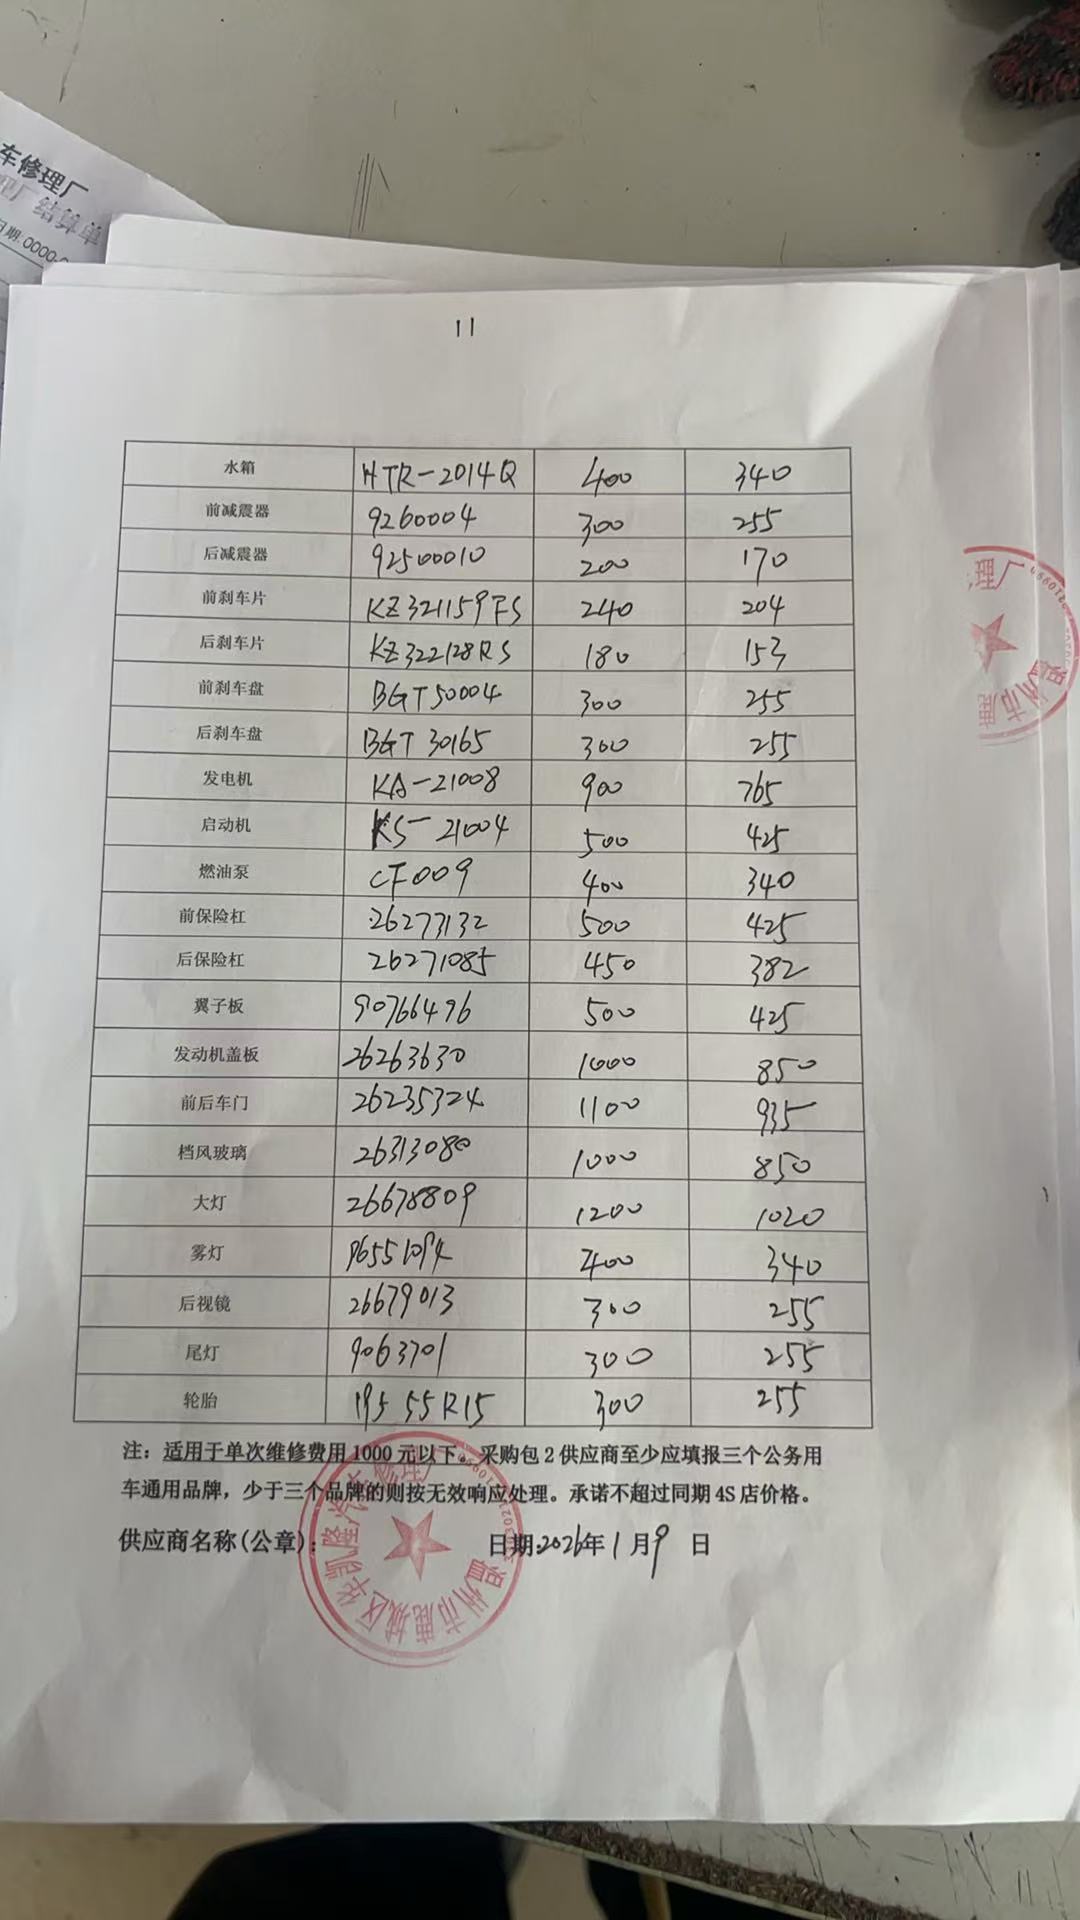 车修理厂
理厂结算单
日期:0000-0
11
水箱 HTR-2014Q 400 340
前减震器 9260004 300 255
后减震器 92500010 200 170
前刹车片 KZ321159FS 240 204
后刹车片 KZ322128RS 180 153
前刹车盘 BGT50004 300 255
后刹车盘 BGT 30165 300 255
发电机 KA-21008 900 765
启动机 KS-21004 500 425
燃油泵 CF009 400 340
前保险杠 26273132 500 425
后保险杠 26271085 450 382
翼子板 90766496 500 425
发动机盖板 26263630 1000 850
前后车门 26235324 1100 935
档风玻璃 26313080 1000 850
大灯 26678809 1200 1020
雾灯 400 340
后视镜 26679013 300 255
尾灯 9063701 300 255
轮胎 195 55R15 300 255
注：适用于单次维修费用1000元以下。采购包2供应商至少应填报三个公务用
车通用品牌，少于三个品牌的则按无效响应处理。承诺不超过同期4S店价格。
供应商名称(公章): 日期:2026年1月9日
温州市鹿城区华凯隆汽车修理厂
理厂
温州市鹿